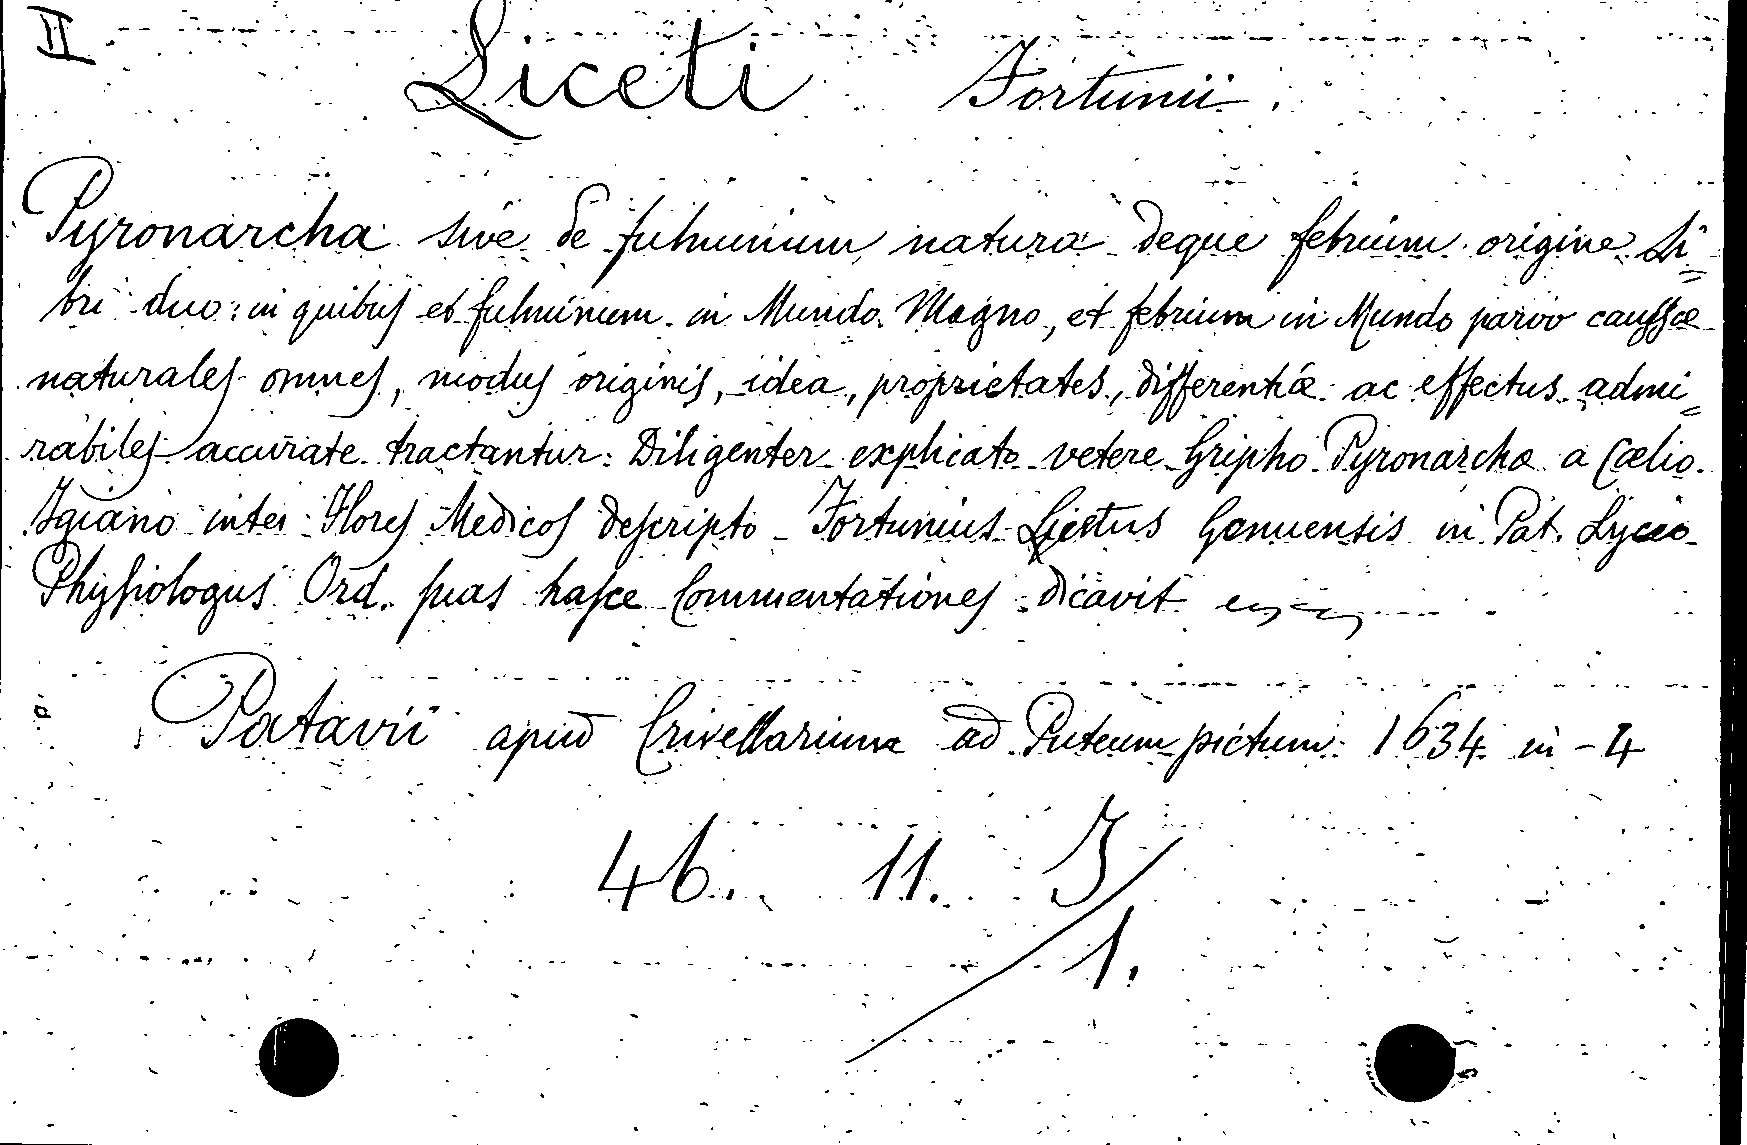 II
Liceti Fortunii.
Pyronarcha sive de fulminum natura deque febrium origine Li=
bri duo: in quibus et fulminum in Mundo Magno, et febrium in Mundo parvo caussæ
naturales omnes, modus originis, idea, proprietates, differentiæ ac effectus admi=
rabiles accurate tractantur: Diligenter explicato vetere Gripho Pyronarcha a Cælio
inter Flores Medicos descripto - Fortunius Licetus Genuensis in Pat. Lyceo
Physiologus Ord. suas hasce Commentationes dicavit
Patavii apud Crivellarium ad Puteum pictum 1634 in-4
46. 11. J/1.